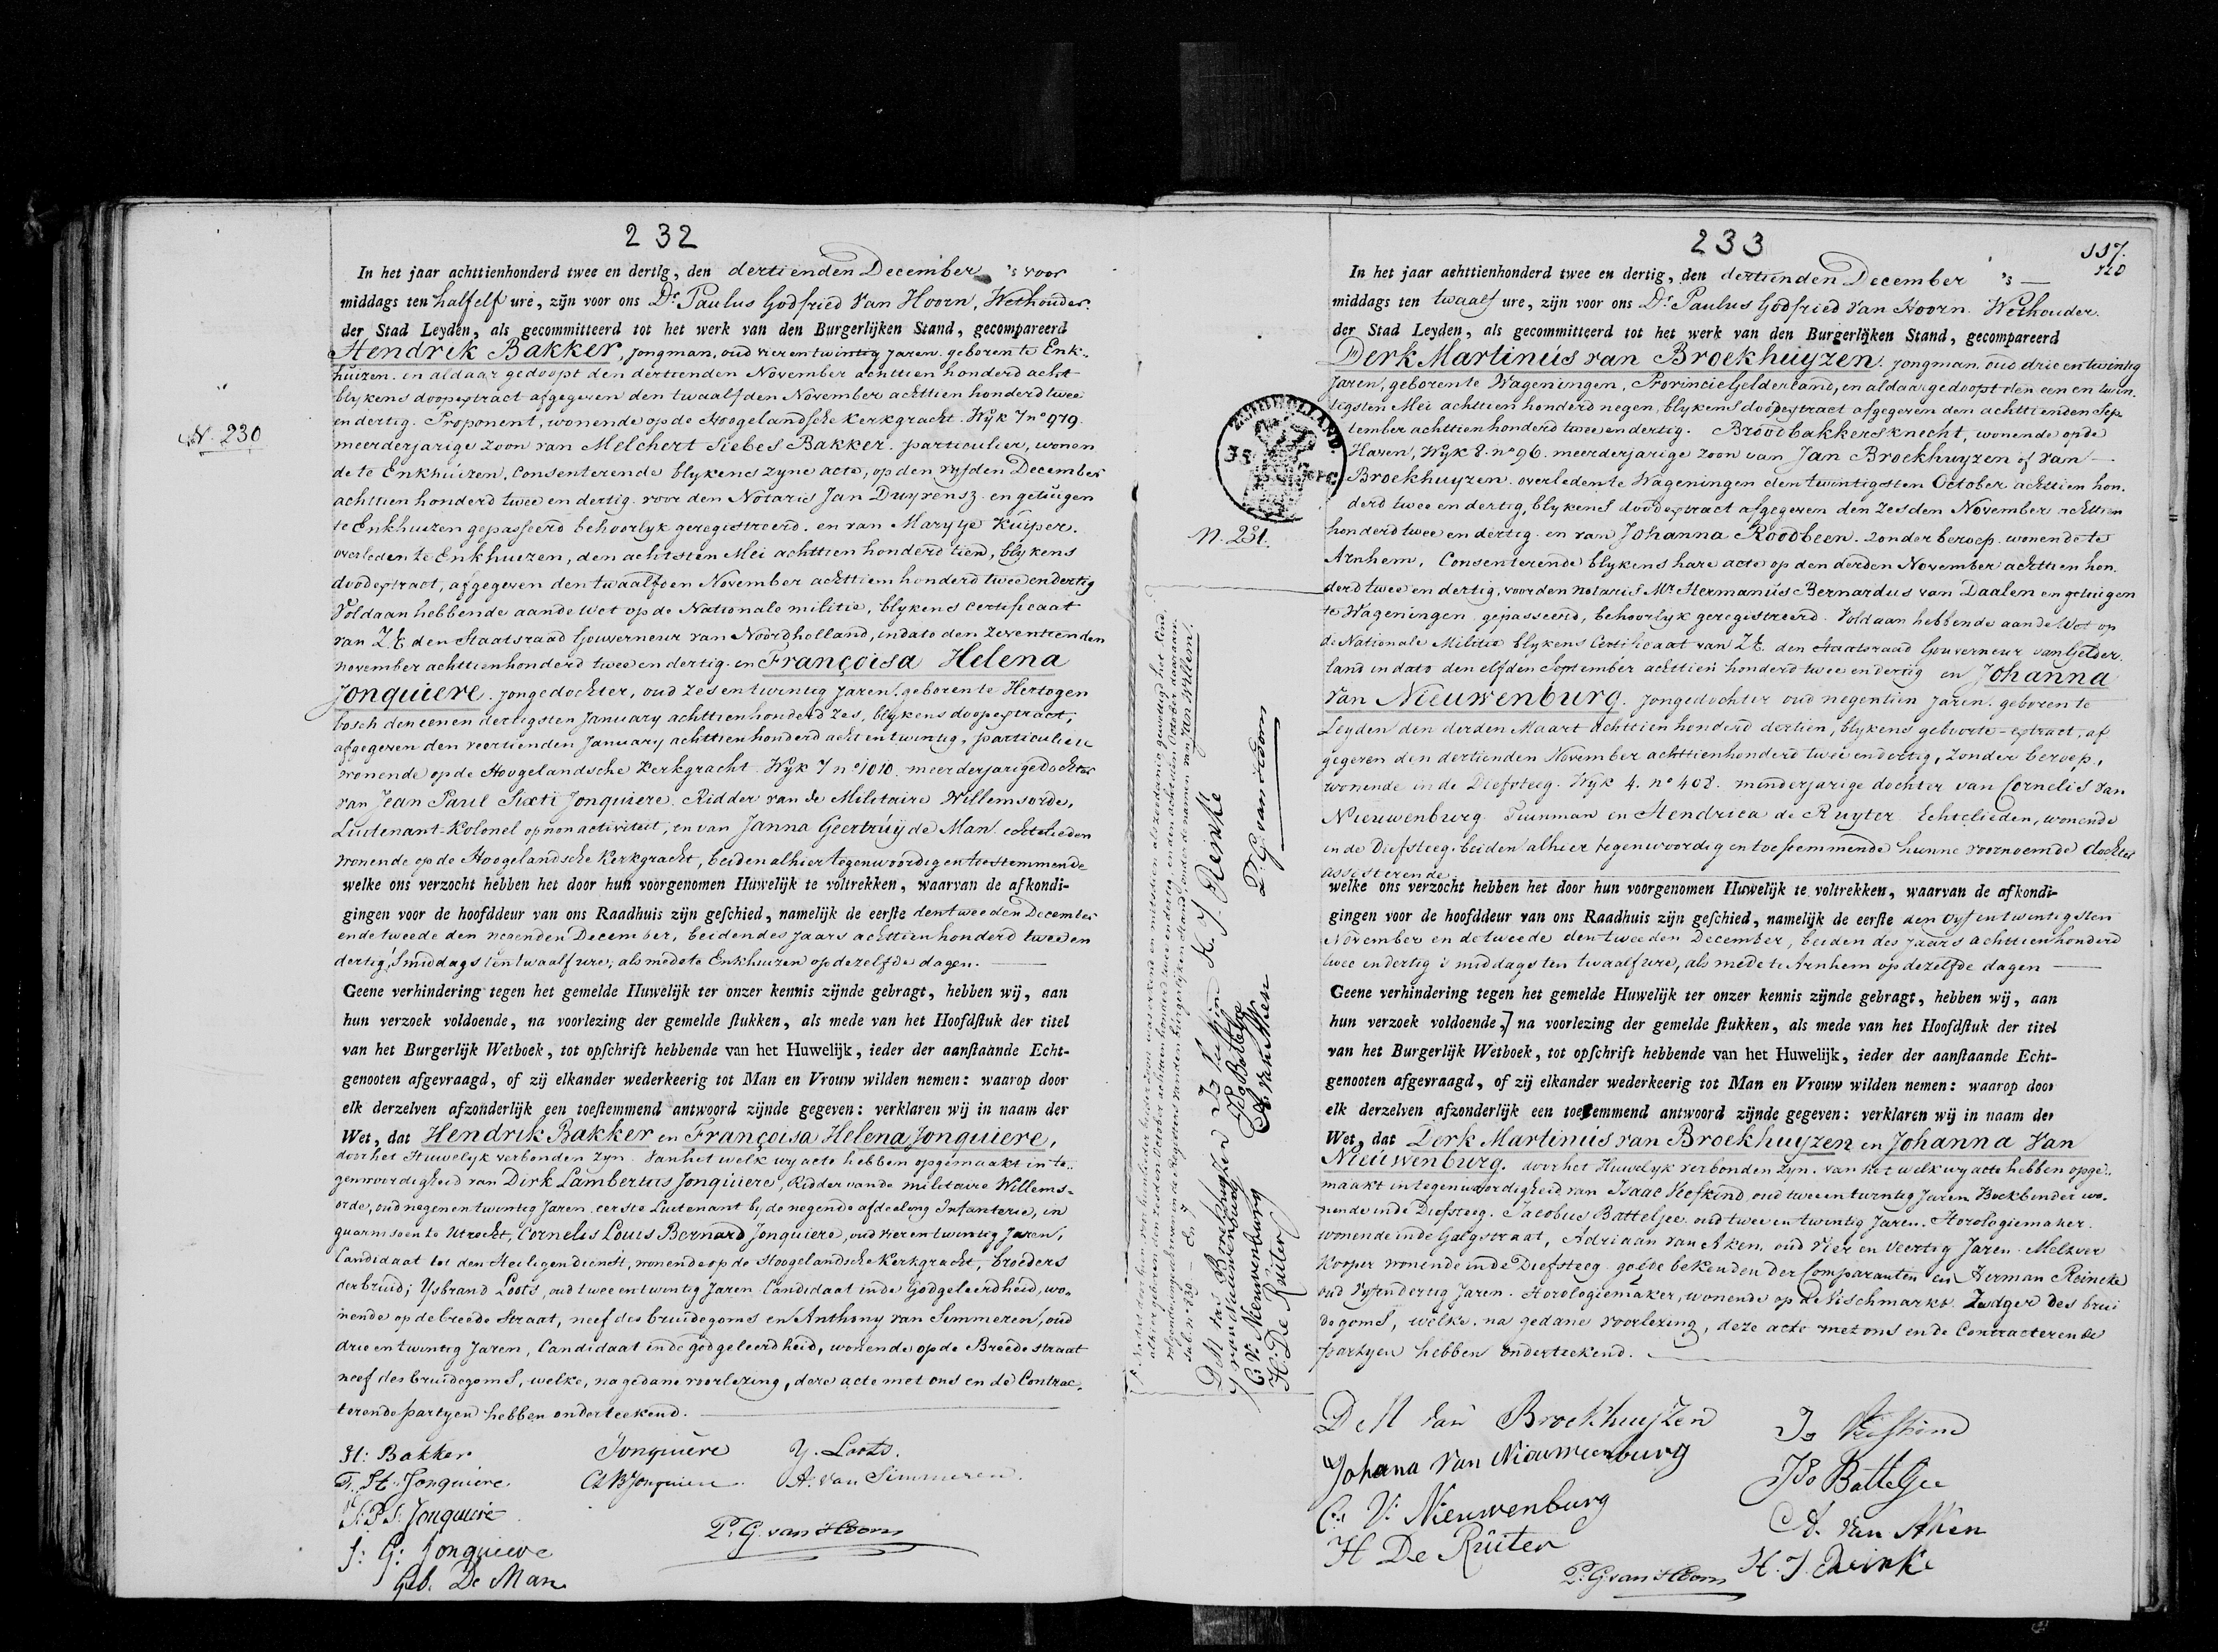 232
In het jaar achttienhonderd twee en dertig, den dertienden December 's voor
middags ten half elf ure, zijn voor ons Dr. Paulus Godfried van Hoorn, Wethouder.
der Stad Leyden, als gecommitteerd tot het werk van den Burgerlijken Stand, gecompareerd
Hendrik Bakker, jongman, oud vier en twintig Jaren. geboren te Enk-
huizen. en aldaar gedoopt den dertienden November achttien honderd acht
blykens doopextract afgegeven den twaalfden November achttien honderd twee
en dertig. Proponent, wonende op de Hoogelandsche Kerkgracht. Wyk 7 no 979.
N. 230
meerderjarige zoon van Melchert Siebes Bakker. particulier, wonen
de te Enkhuizen. Consenterende blykens zyne acte, op den vyfden December
achttien honderd twee en dertig. voor den Notaris Jan Duyvensz. en getuigen
te Enkhuizen gepasseerd behoorlyk geregistreerd. en van Marytje Kuiper.
overleden te Enkhuizen, den achtsten Mei achttien honderd tien, blykens
doodextract, afgegeven den twaalfden November achttien honderd twee en dertig
Voldaan hebbende aan de Wet op de Nationale militie, blykens certificaat
van Z.E. den Staatsraad Gouverneur van Noordholland, in dato den zeventienden
November achttienhonderd twee en dertig. en Françoisa Helena
Jonquiere. jongedochter, oud zes en twintig Jaren. geboren te Hertogen
bosch den eenen dertigsten January achttienhonderd zes, blykens doopextract,
afgegeven den veertienden January achttienhonderd acht en twintig, particuliere
wonende op de Hoogelandsche Kerkgracht. Wyk 7 no 1010. meerderjarige dochter
van Jean Paul Sixti Jonquiere. Ridder van de Militaire Willemsorde,
Luitenant-Kolonel op non activiteit, en van Janna Geertruy de Man. echtelieden
wonende op de Hoogelandsche Kerkgracht, beiden alhier tegenwoordig en toestemmende
welke ons verzocht hebben het door hun voorgenomen Huwelijk te voltrekken, waarvan de afkondi-
gingen voor de hoofddeur van ons Raadhuis zijn geschied, namelijk de eerste den tweeden December
en de tweede den negenden December, beiden des Jaars achttien honderd twee en
dertig 's middags ten twaalf ure, als mede te Enkhuizen op dezelfde dagen.
Geene verhindering tegen het gemelde Huwelijk ter onzer kennis zijnde gebragt, hebben wij, aan
hun verzoek voldoende, na voorlezing der gemelde stukken, als mede van het Hoofdstuk der titel
van het Burgerlijk Wetboek, tot opschrift hebbende van het Huwelijk, ieder der aanstaande Echt-
genooten afgevraagd, of zij elkander wederkeerig tot Man en Vrouw wilden nemen: waarop door
elk derzelven afzonderlijk een toestemmend antwoord zijnde gegeven: verklaren wij in naam der
Wet, dat Hendrik Bakker en Françoisa Helena Jonquiere,
door het Huwelyk verbonden zyn. Van het welk wy acte hebben opgemaakt in te-
genwoordigheid van Dirk Lambertus Jonquiere, Ridder van de militaire Willems-
orde, oud negen en twintig Jaren eerste Luitenant by de negende afdeeling Infanterie, in
guarnisoen te Utrecht, Cornelis Louis Bernard Jonquiere, oud vier en twintig Jaren,
Candidaat tot den Heiligen dienst, wonende op de Hoogelandsche Kerkgracht, broeders
der bruid; Ysbrand Loots, oud twee en twintig Jaren Candidaat in de Godgeleerdheid, wo-
nende op de breede Straat, neef des bruidegoms en Anthony van Simmeren, oud
drie en twintig Jaren, Candidaat in de godgeleerdheid, wonende op de Breede straat
neef des bruidegoms, welke, na gedane voorlezing, deze acte met ons en de Contrac-
terende partyen hebben onderteekend.
H: Bakker
F. H. Jonquiere.
J: P: S: Jonquiere
J: G: Jonquiere
Geb. De Man
Jonquière
CLB Jonquiere.
Y. Loots.
A. van Simmeren.
P. G. van Hoorn
233
117.
120
In het jaar achttienhonderd twee en dertig, den dertienden December 's
middags ten twaalf ure, zijn voor ons Dr. Paulus Godfried van Hoorn. Wethouder.
der Stad Leyden, als gecommitteerd tot het werk van den Burgerlijken Stand, gecompareerd
Derk Martinus van Broekhuyzen. jongman. oud drie en twintig
Jaren, geboren te Wageningen, Provincie Gelderland, en aldaar gedoopt den een en twin-
tigsten Mei achttien honderd negen, blykens doopextract afgegeven den achttienden Sep
tember achttien honderd twee en dertig. Broodbakkersknecht, wonende op de
Haven, Wyk 8. no 96. meerderjarige zoon van Jan Broekhuyzen of van
Broekhuyzen. overleden te Wageningen den twintigsten October achttien hon-
derd twee en dertig, blykens doodextract afgegeven den zesden November achttien
N. 231.
honderd twee en dertig. en van Johanna Roodbeen. zonder beroep. wonende te
Arnhem, Consenterende blykens hare acte op den derden November achttien hon-
derd twee en dertig, voor den notaris Mr. Hermanus Bernardus van Daalen en getuigen
te Wageningen gepasseerd, behoorlyk geregistreerd. Voldaan hebbende aan de Wet op
de Nationale Militie blykens Certificaat van Z.E. den Staatsraad Gouverneur van Gelder-
land in dato den elfden September achttien honderd twee en dertig en Johanna
van Nieuwenburg. jongedochter oud negentien Jaren. geboren te
Leyden den derden Maart achttien honderd dertien, blykens geboorte-extract, af
gegeven den dertienden November achttienhonderd twee en dertig, zonder beroep,
wonende in de Diefsteeg. Wyk 4. no 408. minderjarige dochter van Cornelis van
Nieuwenburg Tuinman en Hendrica de Ruyter Echtelieden, wonende
in de Diefsteeg. beiden alhier tegenwoordig en toestemmende hunne voornoemde dochter
assisterende
welke ons verzocht hebben het door hun voorgenomen Huwelijk te voltrekken, waarvan de afkondi-
gingen voor de hoofddeur van ons Raadhuis zijn geschied, namelijk de eerste den vyf en twintigsten
November en de tweede den tweeden December, beiden des Jaars achttienhonderd
twee en dertig 's middags ten twaalf ure, als mede te Arnhem op dezelfde dagen
Geene verhindering tegen het gemelde Huwelijk ter onzer kennis zijnde gebragt, hebben wij, aan
hun verzoek voldoende, na voorlezing der gemelde stukken, als mede van het Hoofdstuk der titel
van het Burgerlijk Wetboek, tot opschrift hebbende van het Huwelijk, ieder der aanstaande Echt-
genooten afgevraagd, of zij elkander wederkeerig tot Man en Vrouw wilden nemen: waarop door
elk derzelven afzonderlijk een toestemmend antwoord zijnde gegeven: verklaren wij in naam der
Wet, dat Derk Martinus van Broekhuyzen en Johanna Van
Nieuwenburg. door het Huwelyk verbonden zyn. van het welk wy acte hebben opge-
maakt in tegenwoordigheid van Isaac Keefkind, oud twee en twintig Jaren Boekbinder wo-
nende in de Diefsteeg. Jacobus Batteljee oud twee en twintig Jaren. Horologiemaker.
wonende in de Galgstraat, Adriaan van Aken, oud vier en veertig Jaren. Melkver
kooper wonende in de Diefsteeg goede bekenden der Comparanten en Herman Reincke
oud vyf en dertig Jaren. Horologiemaker, wonende op de Vischmarkt. Zwager des brui
degoms, welke. na gedane voorlezing, deze acte met ons en de Contracterende
partyen hebben onderteekend.
D M van Broekhuyzen
Johana van Nieuwenburg
C: V: Nieuwenburg
H De Ruiter
Is Keefkind
Jbo Batteljee
A. van Aken
H. J. Reinke
P. G van Hoorn
D M van Broekhuyzen
J van Nieuwenburg
C. V. Nieuwenburg
H: De Ruiter
Jbo Batteljee
A. van Aken
H. J. Reinke
P. G. van Hoorn